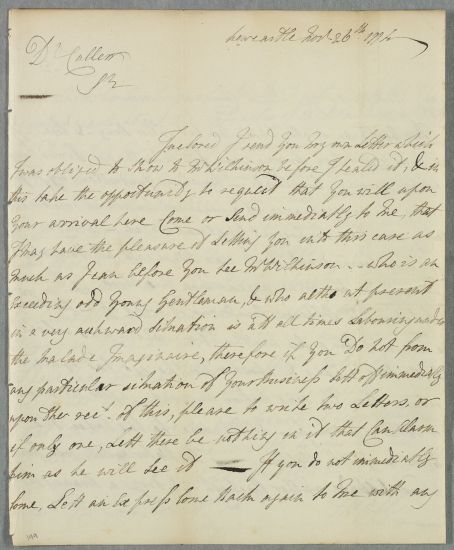 Newcastle Novr. 26th 17
Dr Cullen
Sr
Inclosed I send you my in Letter which
I was obliged to show to Mr Wilkinson before I seal'd it, & in
this take the opportunedy to request that you will upon
your arrival here Come or Send immediatly to me, that
I may have the pleasure of Letting you into this case as
much as I can before you see Mr Wilkinson -- who is an
Exceeding odd young Gentleman, & who altho at present
in a very awkward situation is att all times Labouring under
the Malade Imaginaire, therefore if you Do not from
any particular situation of your Business Sett off immediatly
upon the rect. of this, please to write two Letters. or
if only one, Lett there be nothing in it that Can alarm
him as he will see it — If you do not immediatly
Come, Lett an Express Come back again to me with any
199